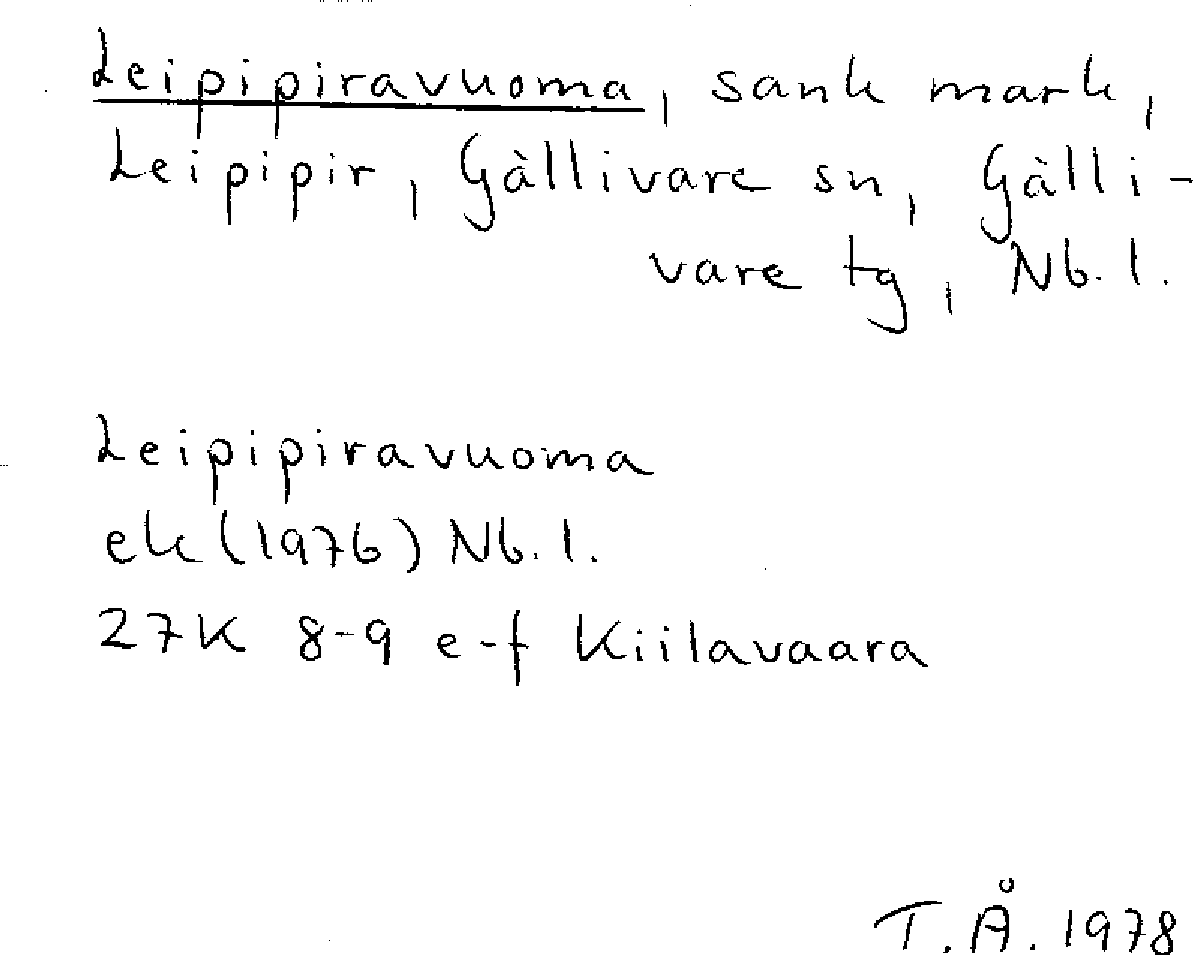 Leipipiravuoma, sank mark,
Leipipir, Gällivare sn, Gälli-
vare tg, Nb. l.
Leipipiravuoma
ek (1976) Nb. l.
27K 8-9 e-f Kiilavaara
T. Å. 1978